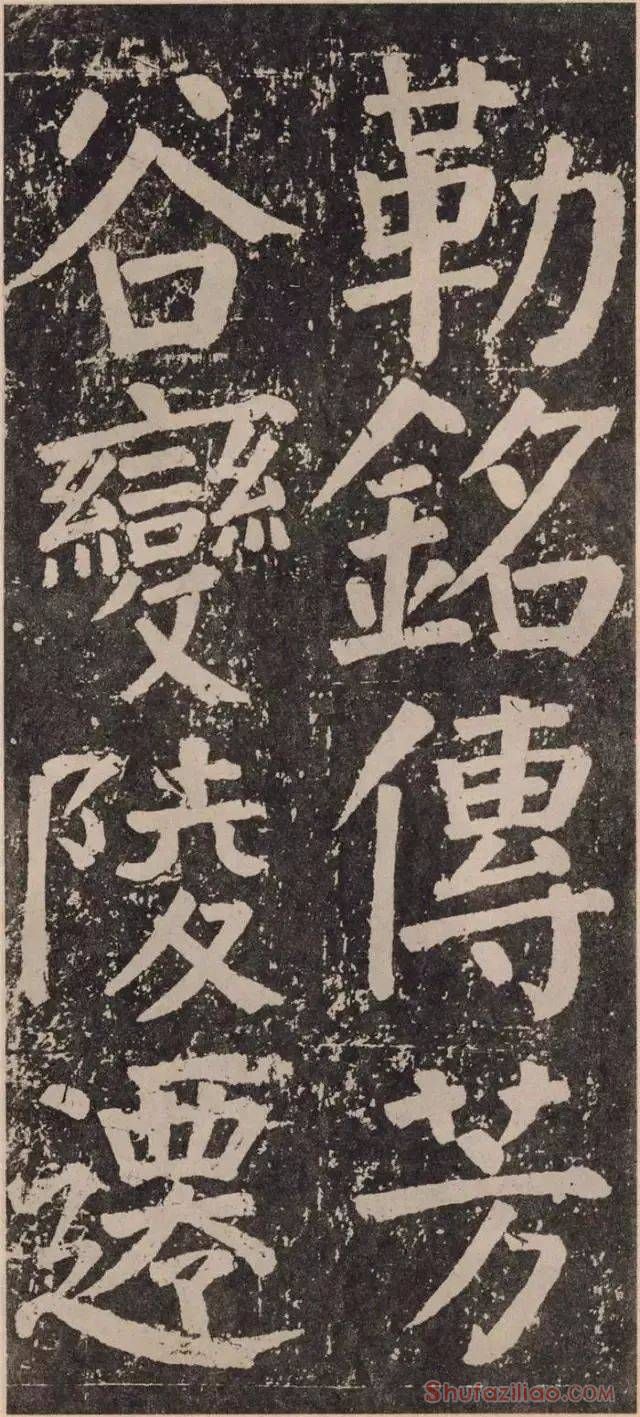 勒銘傳芳
谷變陵遷
Shufaziliao.com